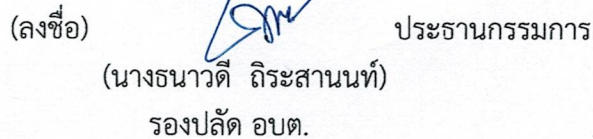 (ลงชื่อ) ประธานกรรมการ
(นางธนาวดี ถิระสานนท์)
รองปลัด อบต.